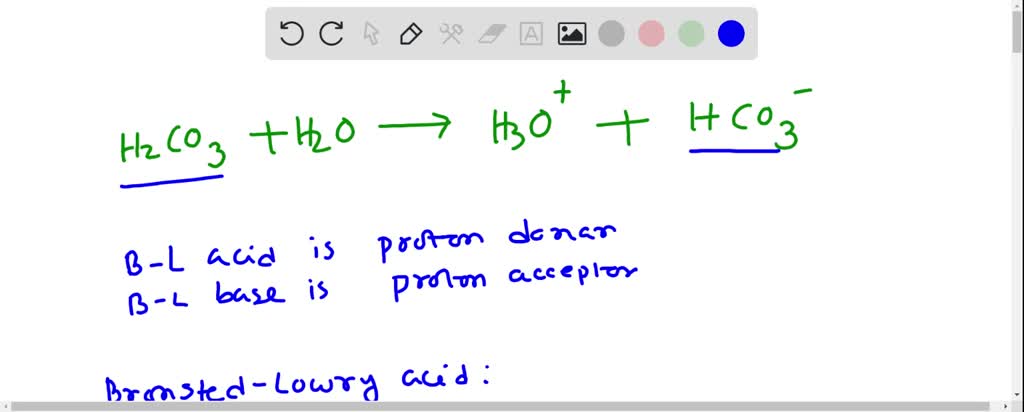 A
H₂CO₃ + H₂O → H₃O⁺ + HCO₃⁻
B-L acid is proton donar
B-L base is proton acceptor
Bronsted-Lowry acid: